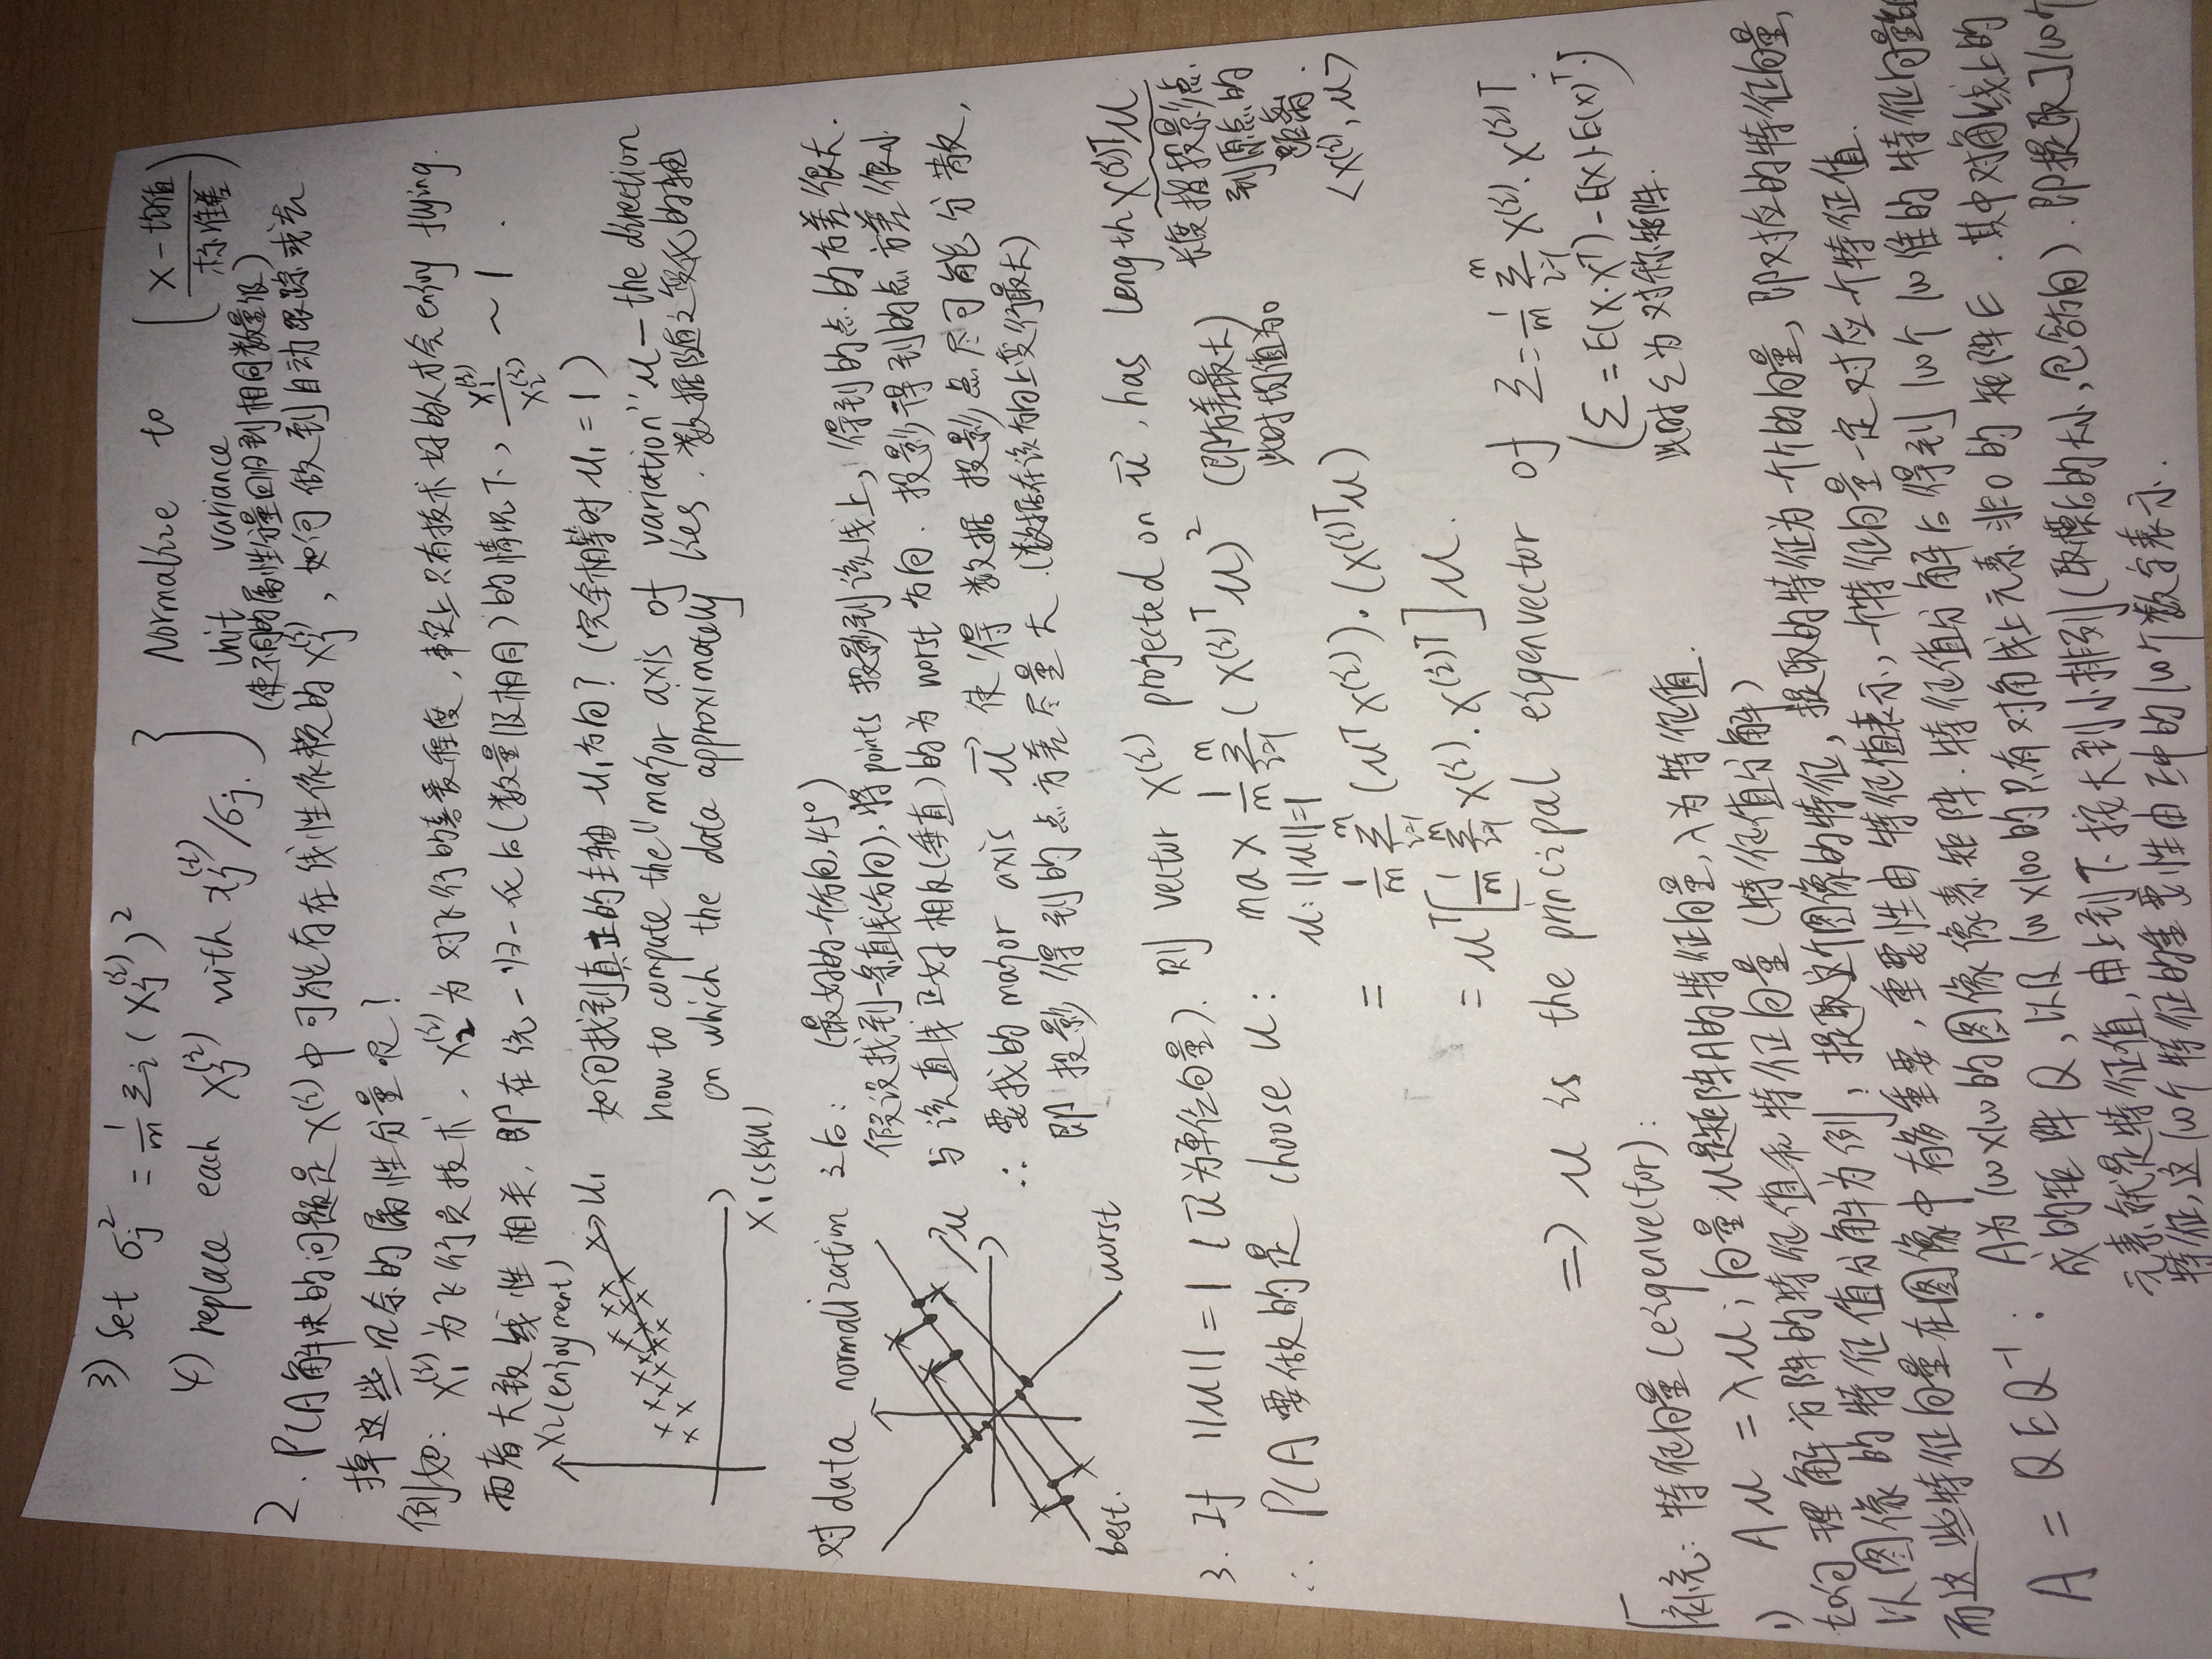 3) Set σj² = 1/m Σi (xj^(i))²
4) replace each xj^(i) with xj^(i)/σj.
Normalize to unit variance ( (x-均值)/标准差 )
(使不同的属性分量回归到相同数量级)
2. PCA解决的问题是 x^(i) 中可能存在线性依赖的 xj^(i), 如何做到自动跟踪或去
掉这些冗余的属性分量呢?
例如: x1^(i) 为飞行员技术, x2^(i) 为对飞行的喜爱程度, 事实上只有技术好的人才会 enjoy flying.
两者大致线性相关, 即在统一归一化后(数量级相同)的情况下, x1^(i)/x2^(i) ~ 1.
x2(enjoyment)
u1
x1(skill)
如何找到真正的主轴 u1方向? (完全相等时 u1 = 1)
how to compute the "major axis of variation" u — the direction
on which the data approximately lies. 数据随之变化的轴
对 data normalization 之后: (最好的一个方向, 45°)
假设找到一条直线(方向), 将 points 投影到该线上, 得到的点的方差很大.
与该直线正好相反(垂直)的为 worst 方向. 投影得到的点方差很小
∴ 要找的 major axis u⃗ 使得数据投影点尽可能分散,
即投影得到的点方差尽量大. (数据在该方向上变行最大)
u⃗
best.
worst
3. If ||u|| = 1 (u⃗为单位向量). 则 vector x^(i) projected on u⃗, has length x^(i)T u
长度指投影点
到原点的
距离.
<x^(i), u>
∴ PCA要做的是 choose u: max 1/m Σ_{i=1}^m (x^(i)T u)² (即方差最大)
u: ||u||=1
此时均值为0
= 1/m Σ_{i=1}^m (u^T x^(i))·(x^(i)T u)
= u^T [1/m Σ_{i=1}^m x^(i)·x^(i)T] u.
=> u is the principal eigenvector of Σ = 1/m Σ_{i=1}^m x^(i)·x^(i)T.
(Σ = E(x·x^T) - E(x)·E(x)^T.)
此时Σ为对称矩阵.
补充: 特征向量 (eigenvector):
1) Au = λu; 向量u是矩阵A的特征向量, λ为特征值.
如何理解方阵的特征值和特征向量 (特征值分解)
以图像的特征值分解为例, 提取这个图像的特征, 提取的特征为一个个的向量, 即对应的特征向量,
而这些特征向量在图像中有多重要, 重要性由特征值表示, 一个特征向量一定对应一个特征值.
A = QEQ⁻¹: A为100x100的图像像素矩阵. 特征值分解后得到100个100维的特征向量组
成的矩阵Q, 以及100x100的只有对角线上元素非0的矩阵E. 其中对角线上的
元素就是特征值, 由上到下按大到小排列(取模后的大小, 包含方向). 即提取了100个
特征, 这100个特征的重要性由E中的100个数字表示.